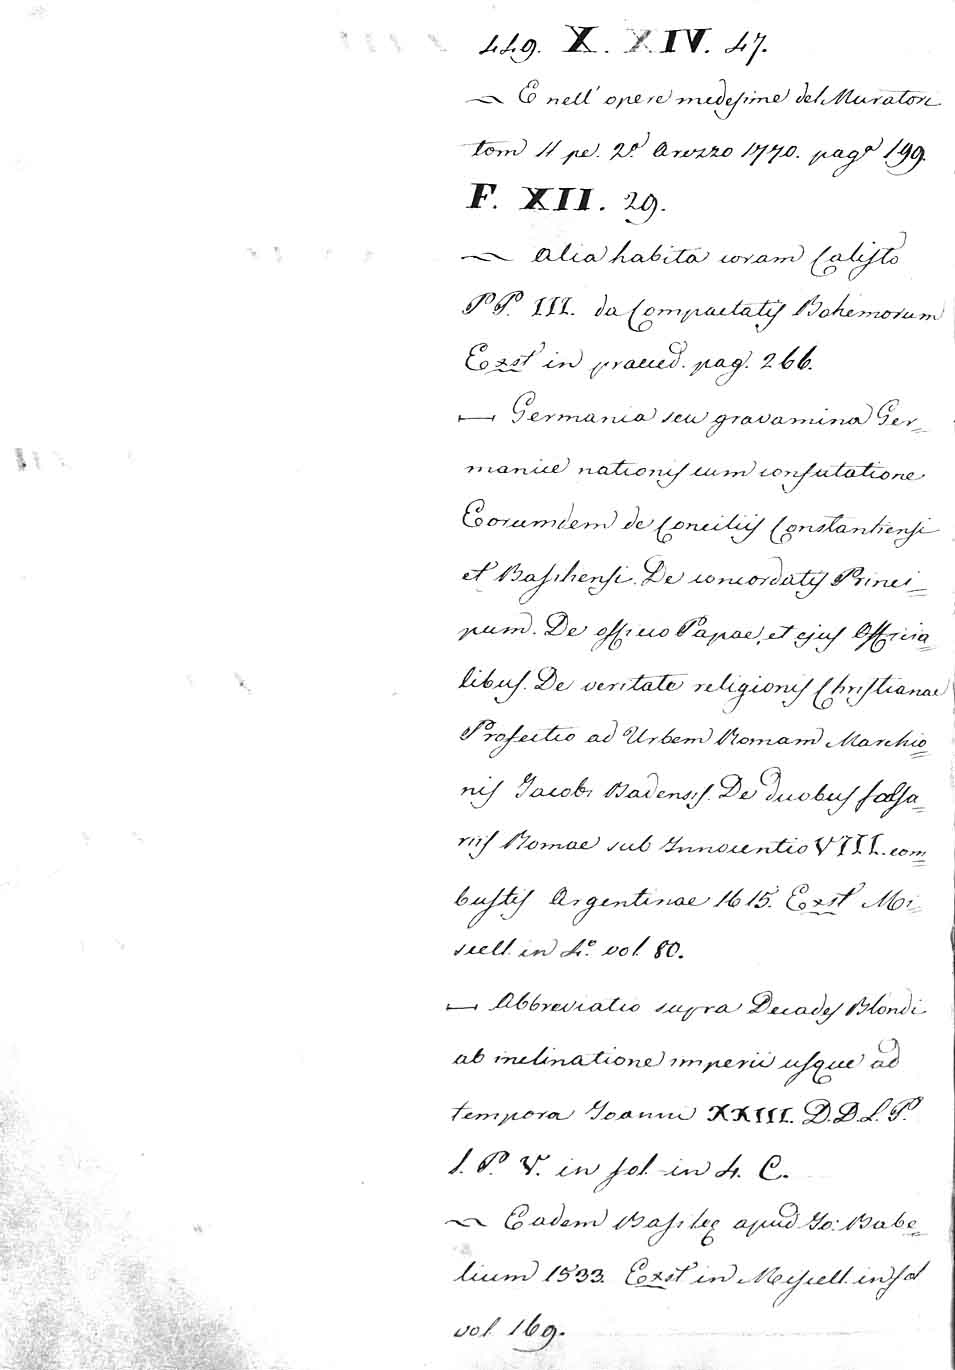 449. X. XIV. 47.
~ E nell' opere medesime del Muratori
tom 4 pe. 2.ª Arezzo 1770. pag.ª 199.
F. XII. 29.
~ Alia habita coram Calisto
PP. III. da Compactatis Bohemorum
Exst in praeced. pag. 266.
— Germania seu gravamina Ger=
manice nationis cum confutatione
Eorumdem de Conciliis Constantiensi
et Basilensi. De concordatis Princi=
pum. De officio Papae, et ejus Officia=
libus. De veritate religionis Christianae
Profectio ad Urbem Romam Marchio=
nis Jacobi Badensis. De duobus falsa=
riis Romae sub Innocentio VIII. com=
bustis Argentinae 1615. Exst Mi=
scell. in 4.º vol. 80.
— Abbreviatio supra Decades Blondi
ab inclinatione imperii usque ad
tempora Joanni XXIII. D.D.L.P.
l. P. V. in fol. in 4. C.
~ Eadem Basileę apud Jo: Babe=
lium 1533. Exst in Miscell. in fol
vol. 169.